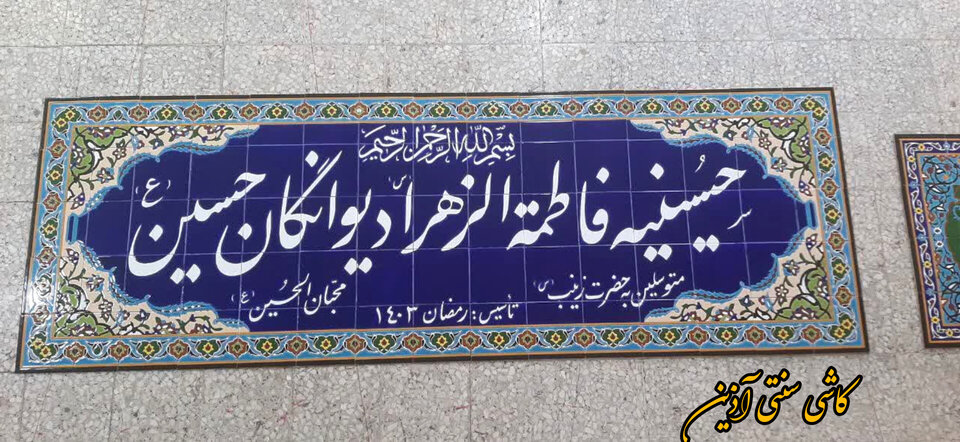 بسم الله الرحمن الرحیم
حسینیه فاطمة الزهرا (س) دیوانگان حسین (ع)
متوسلین به حضرت زینب (س)
محبان الحسین (ع)
تأسیس: رمضان ۱۴۰۳
کاشی سنتی آذین